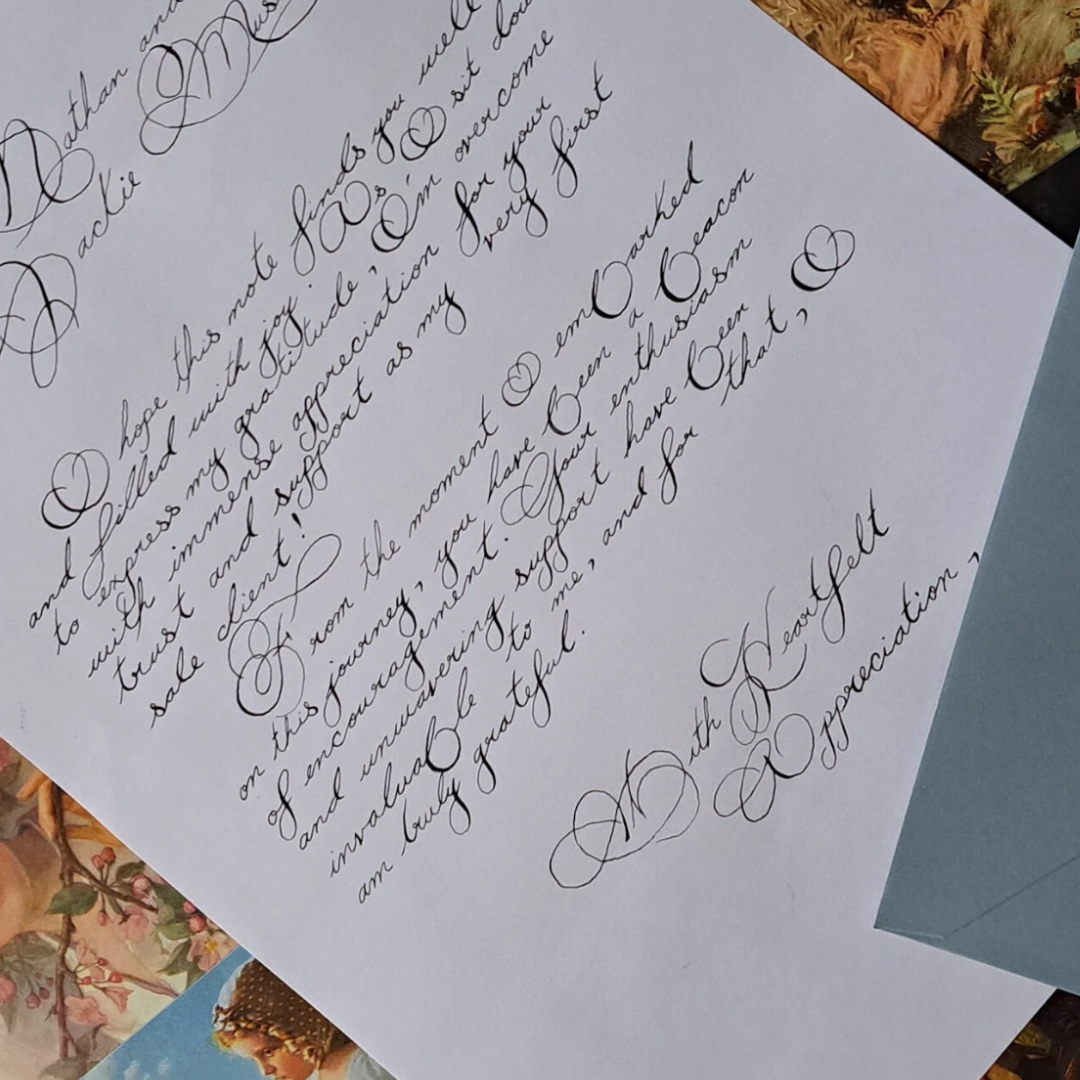 Nathan and
Jackie
I hope this note finds you well
and filled with joy. As I sit
to express my gratitude, I'm overcome
with immense appreciation for your
trust and support as my very first
sale client!
From the moment I embarked
on this journey, you have been a beacon
of encouragement. Your enthusiasm
and unwavering support have been
invaluable to me, and for that, I
am truly grateful.
With Heartfelt
Appreciation,